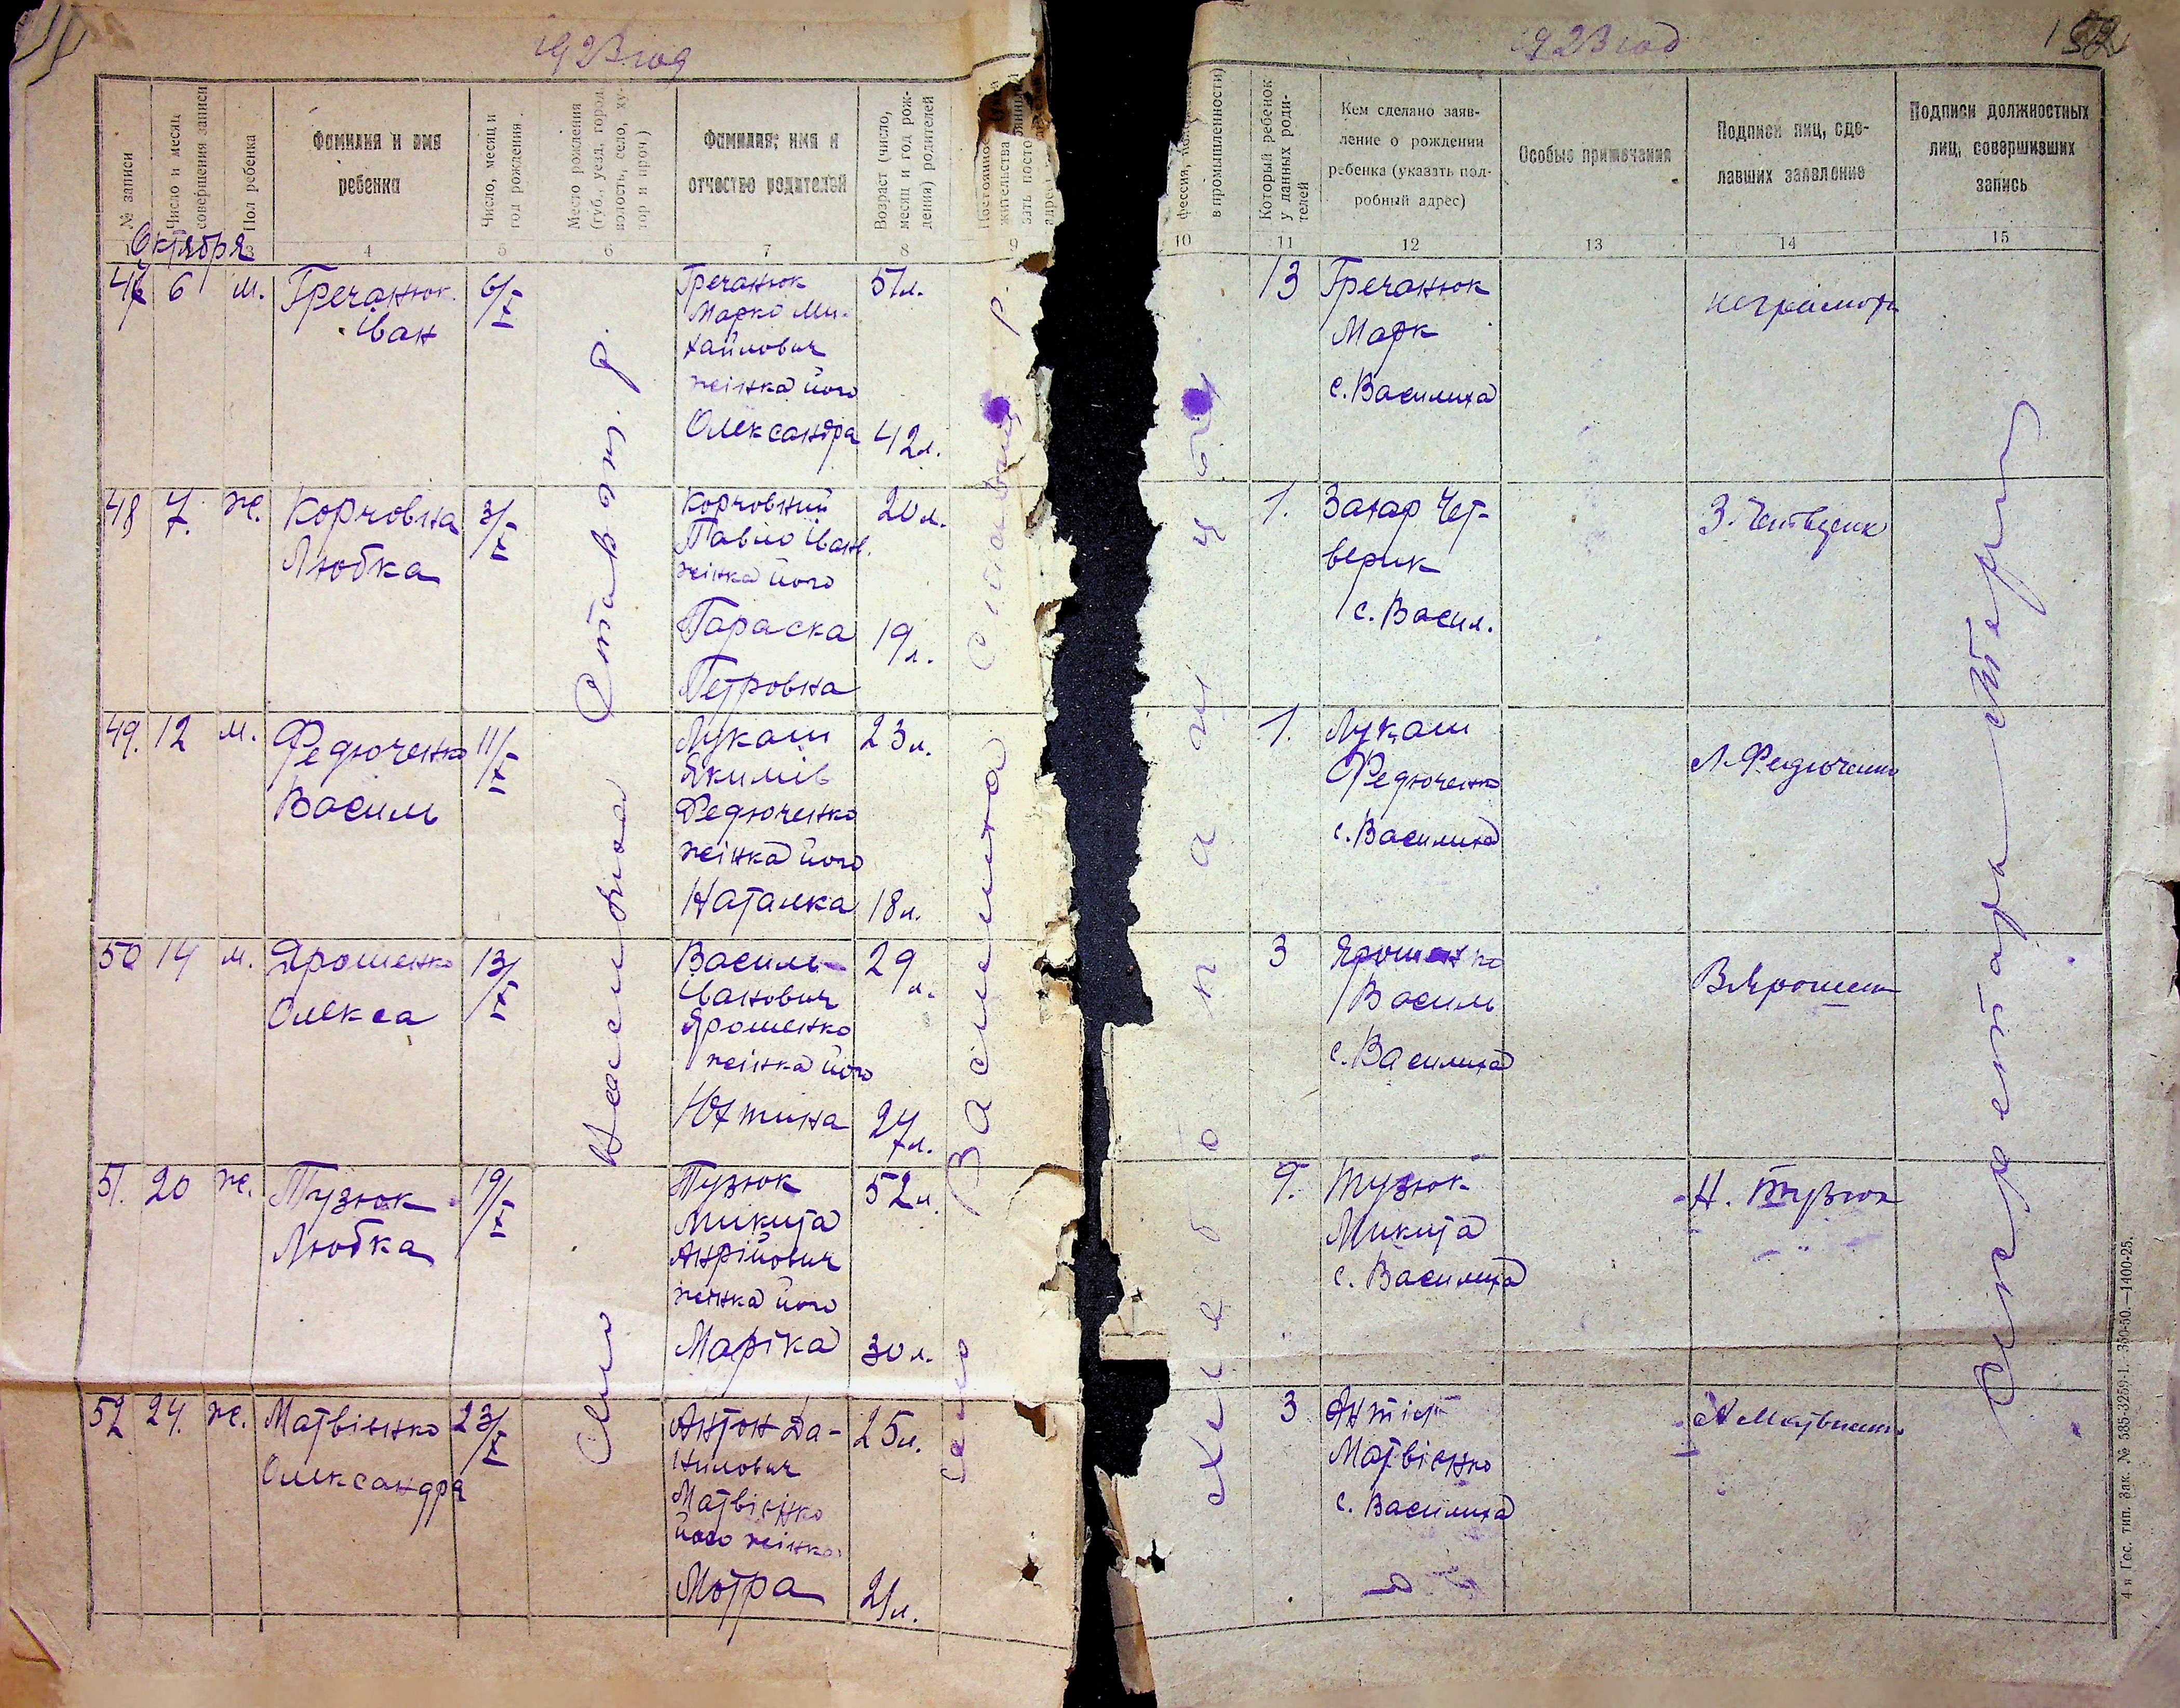 1923 год
1923 год
152
№ записи
Число и месяц
совершения записи
Пол ребенка
Фамилия и имя
ребенка
Число, месяц и
год рождения
Место рождения
(губ., уезд, город,
волость, село, ху-
тор и проч)
Фамилия, имя и
отчество родителей
Возраст (число,
месяц и год рож-
дения) родителей
жительства
в промышленности)
Который ребенок
у данных роди-
телей
Кем сделано заяв-
ление о рождении
ребенка (указать под-
робный адрес)
Особые примечания
Подписи лиц, сде-
лавших заявление
Подписи должностных
лиц, совершивших
запись
Октября
3
4
5
6
7
8
9
10
11
12
13
14
15
47 6 м.
Гречанюк
Іван
6/X
Гречанюк
Марко Ми-
хайлович
жінка його
Олександра
51 л.
42 л.
13
Гречанюк
Марк
с. Василиха
неграмотн
48 7. ж.
Корчовна
Любка
3/X
Корчовний
Павло Іванв.
жінка його
Параска
Петровна
20 л.
19 л.
1.
Захар Чет-
верик
с. Васил.
З. Четверик
49. 12 м.
Федюченко
Василь
11/X
Лукаш
Якимів
Федюченко
жінка його
Наталка
23 л.
18 л.
1.
Лукаш
Федюченко
с. Василиха
Л. Федюченко
50 14 м.
Ярошенко
Олекса
13/X
Василь
Іванович
Ярошенко
жінка його
Юхтина
29 л.
27 л.
3
Ярошенко
Василь
с. Василиха
В Ярошенк
51. 20 ж.
Тузюк
Любка
19/X
Тузюк
Микита
Анрійович
жінка його
Маріка
52 л.
30 л.
9.
Тузюк
Микита
с. Василиха
Н. Тузюк
52 24. ж.
Матвієнко
Олександра
23/X
Антон Да-
нилович
Матвієнко
його жінка
Мотра
25 л.
21 л.
3
Антін
Матвієнко
с. Василиха
А Матвиенк
Село Василиха Ставощ. р.
село Василиха р.
хлебопашці
Секретарь
4-я Гос. тип. Зак. № 585-3259-1. 350-50.—1400-25.